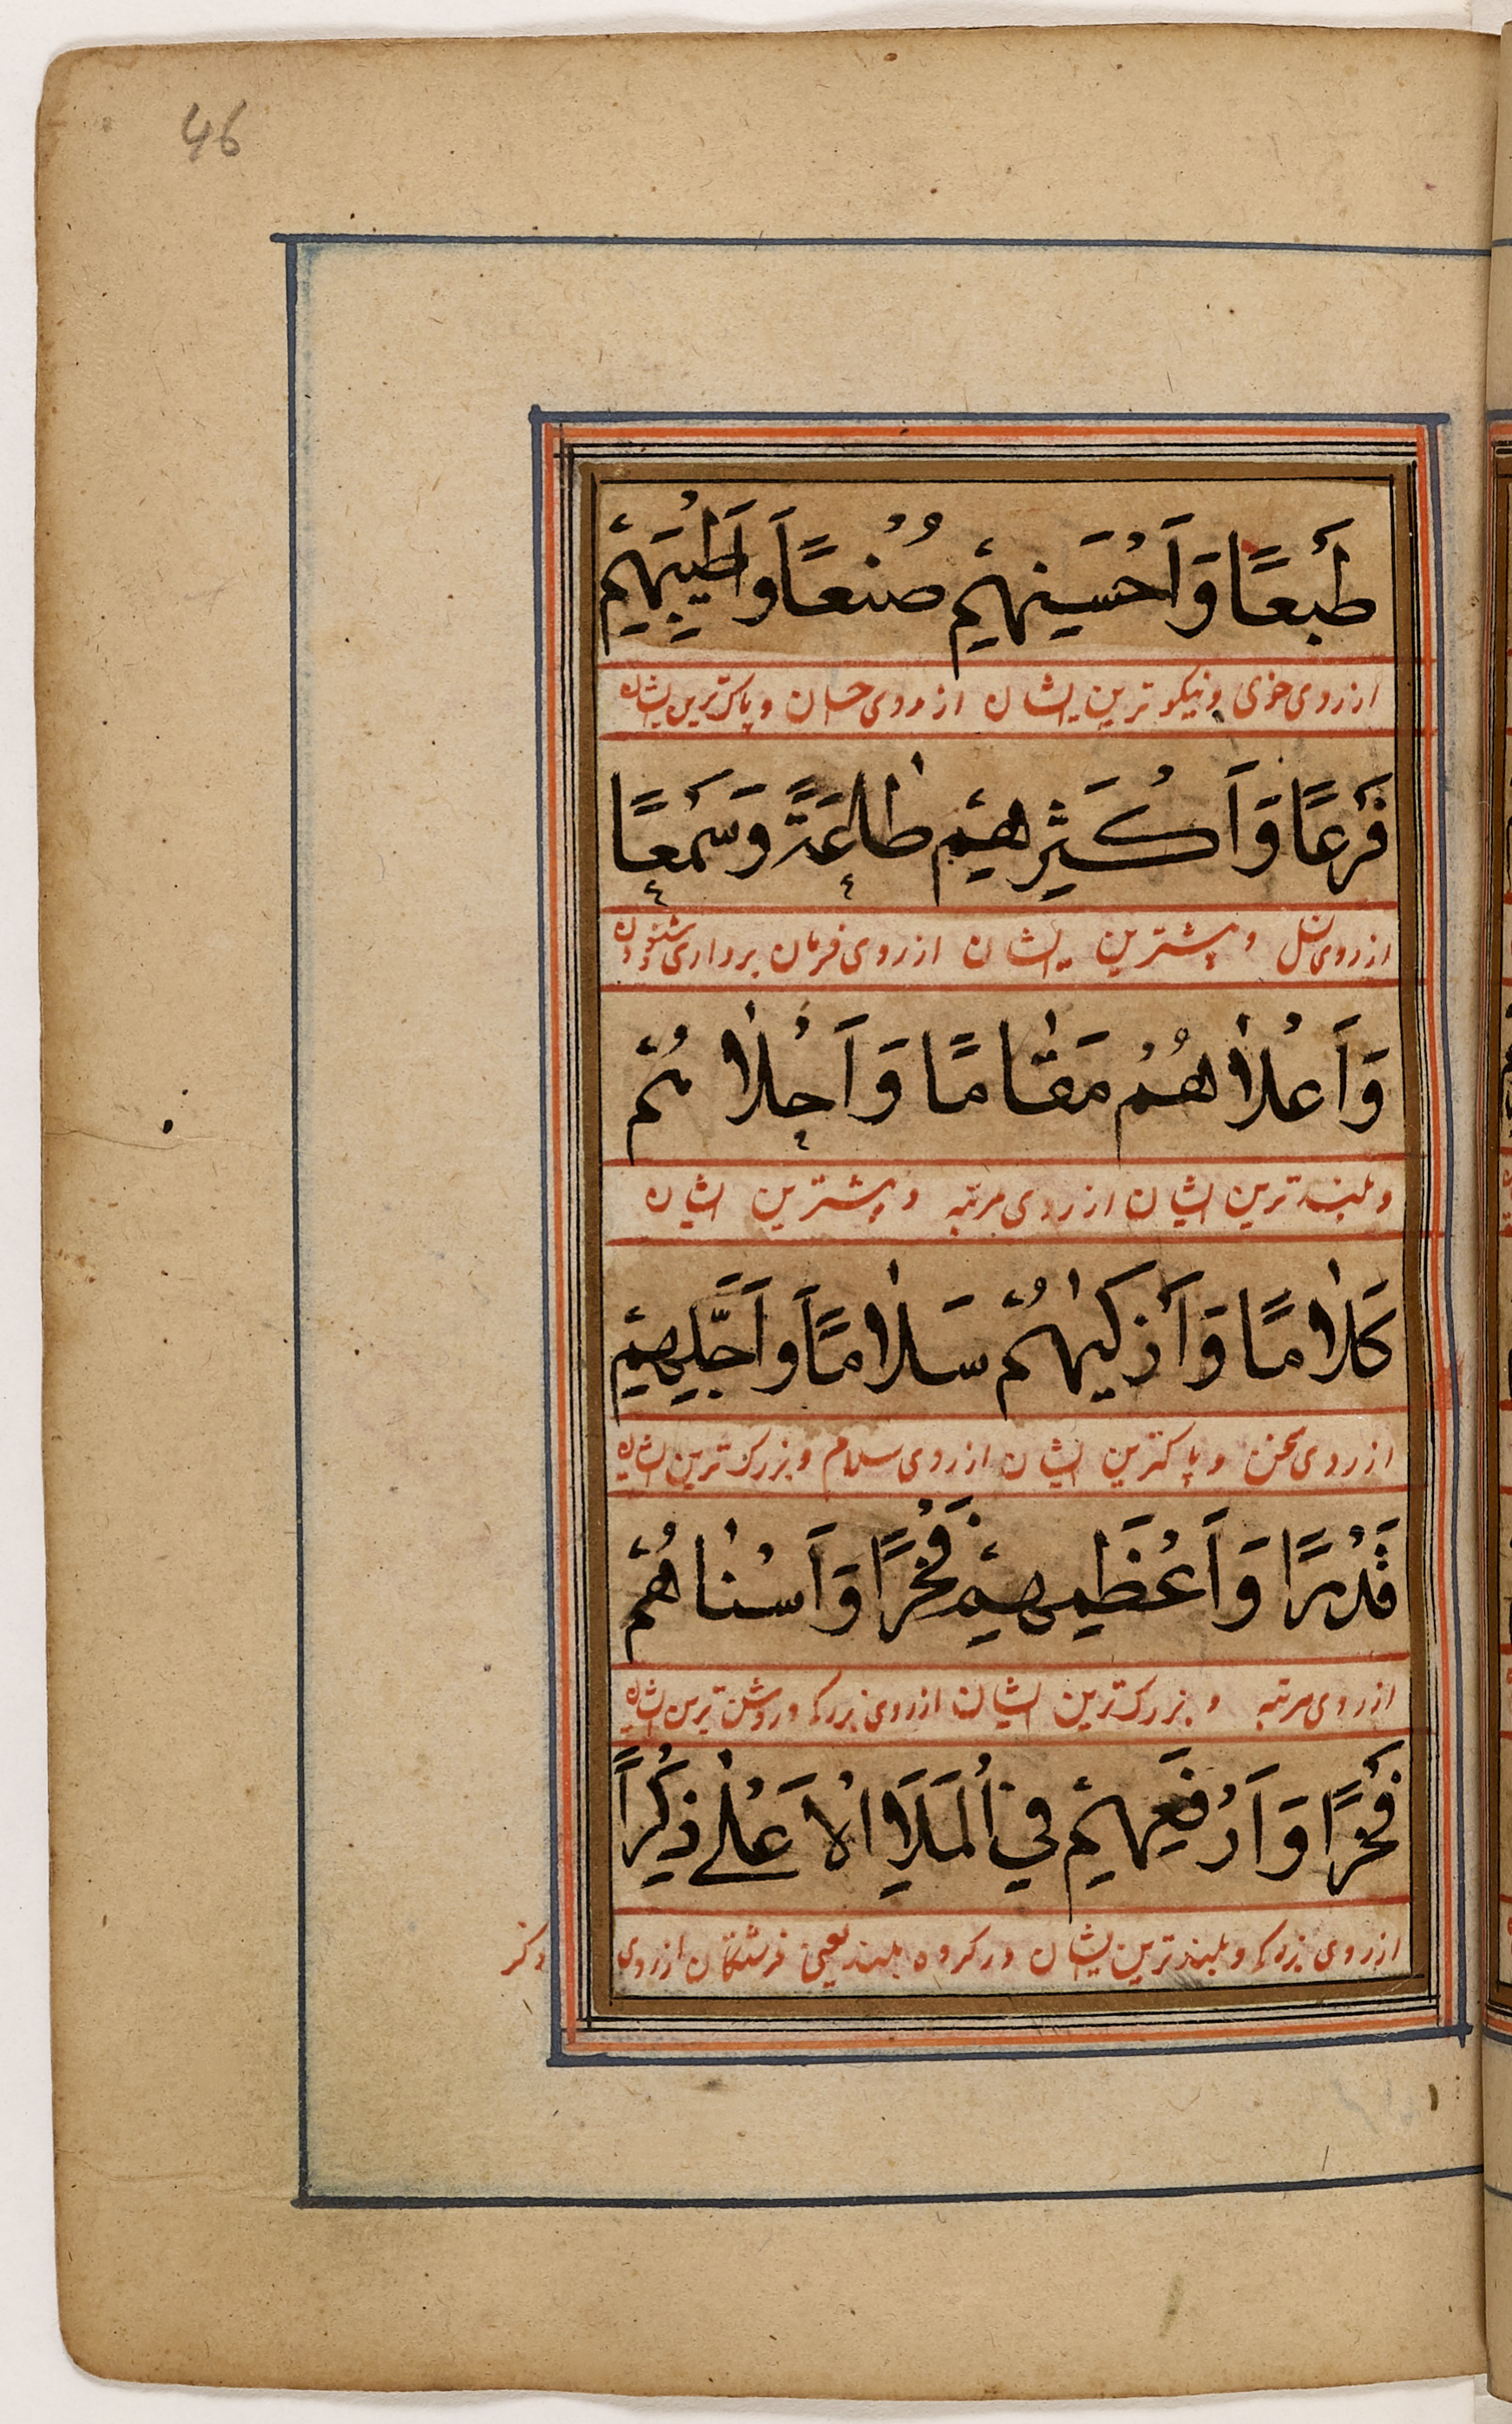 46
طَبعًا وَاَحْسَنِهِمْ صُنْعًا وَاَطْيَبِهِمْ
ازروی خوی و نیکو ترین ایشان ازروی احسان و پاک ترین ایشان
فَرعًا وَاَكْثَرِهِمْ طاعَةً وَسَمعًا
ازروی نسل و بیشترین ایشان ازروی فرمان برداری و شنودن
وَاَعْلاهُمْ مَقامًا وَاَحْلاهُمْ
و بلند ترین ایشان ازروی مرتبه و بیشترین ایشان
كَلامًا وَاَزكيهُمْ سَلامًا وَاَجَلِّهِمْ
ازروی سخن و پاکترین ایشان ازروی سلام و بزرک ترین ایشان
قَدْرًا وَاَعْظَمِهِمْ فَخْرًا وَاَسْناهُمْ
ازروی مرتبه و بزرک ترین ایشان ازروی بزرکی و روشن ترین ایشان
فَخْرًا وَاَرْفَعِهِمْ فِي الْمَلَاِ الْاَعْلٰى ذِكْرًا
ازروی بزرکی و بلند ترین ایشان در کروه بلند یعنی فرشتکان ازروی
ذکر